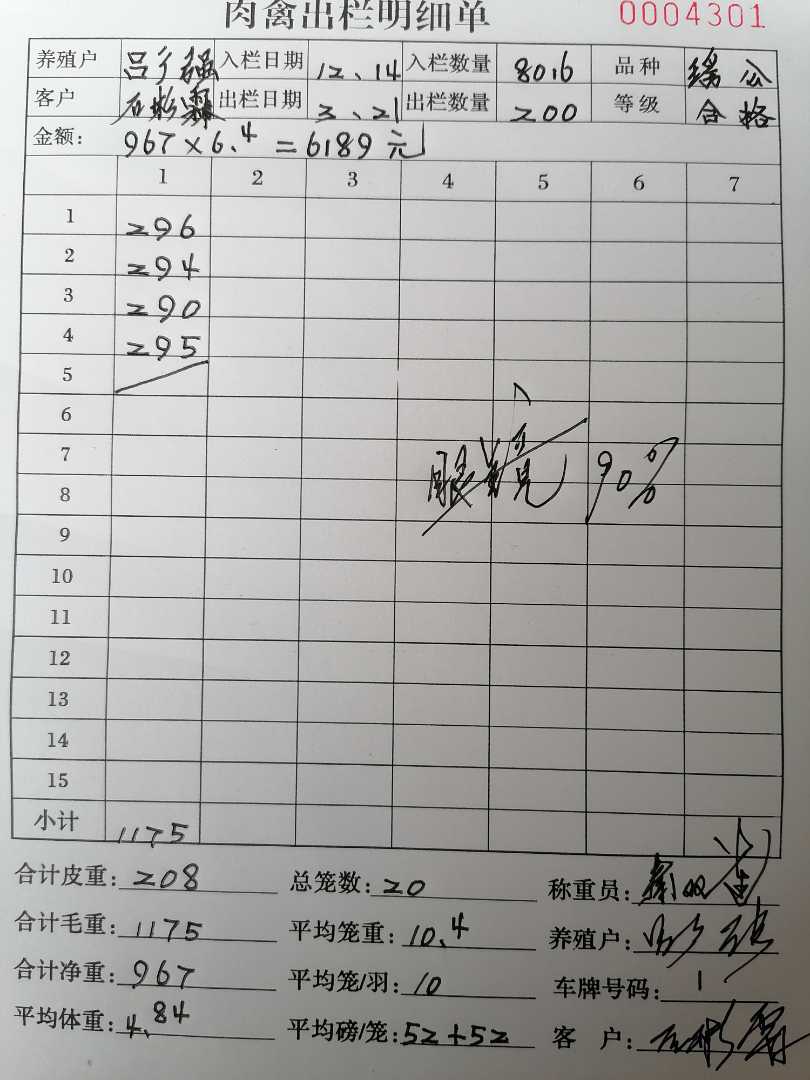 肉禽出栏明细单 0004301
养殖户 吕 强 入栏日期 12、14 入栏数量 8016 品种 公
客户 石彬霖 出栏日期 3、21 出栏数量 200 等级 合格
金额: 967×6.4=6189元
1 2 3 4 5 6 7
1 296
2 294
3 290
4 295
5
6
7
8 90%
9
10
11
12
13
14
15
小计 1175
合计皮重: 208 总笼数: 20 称重员:
合计毛重: 1175 平均笼重: 10.4 养殖户:
合计净重: 967 平均笼/羽: 10 车牌号码: 1
平均体重: 4.84 平均磅/笼: 52+52 客 户: